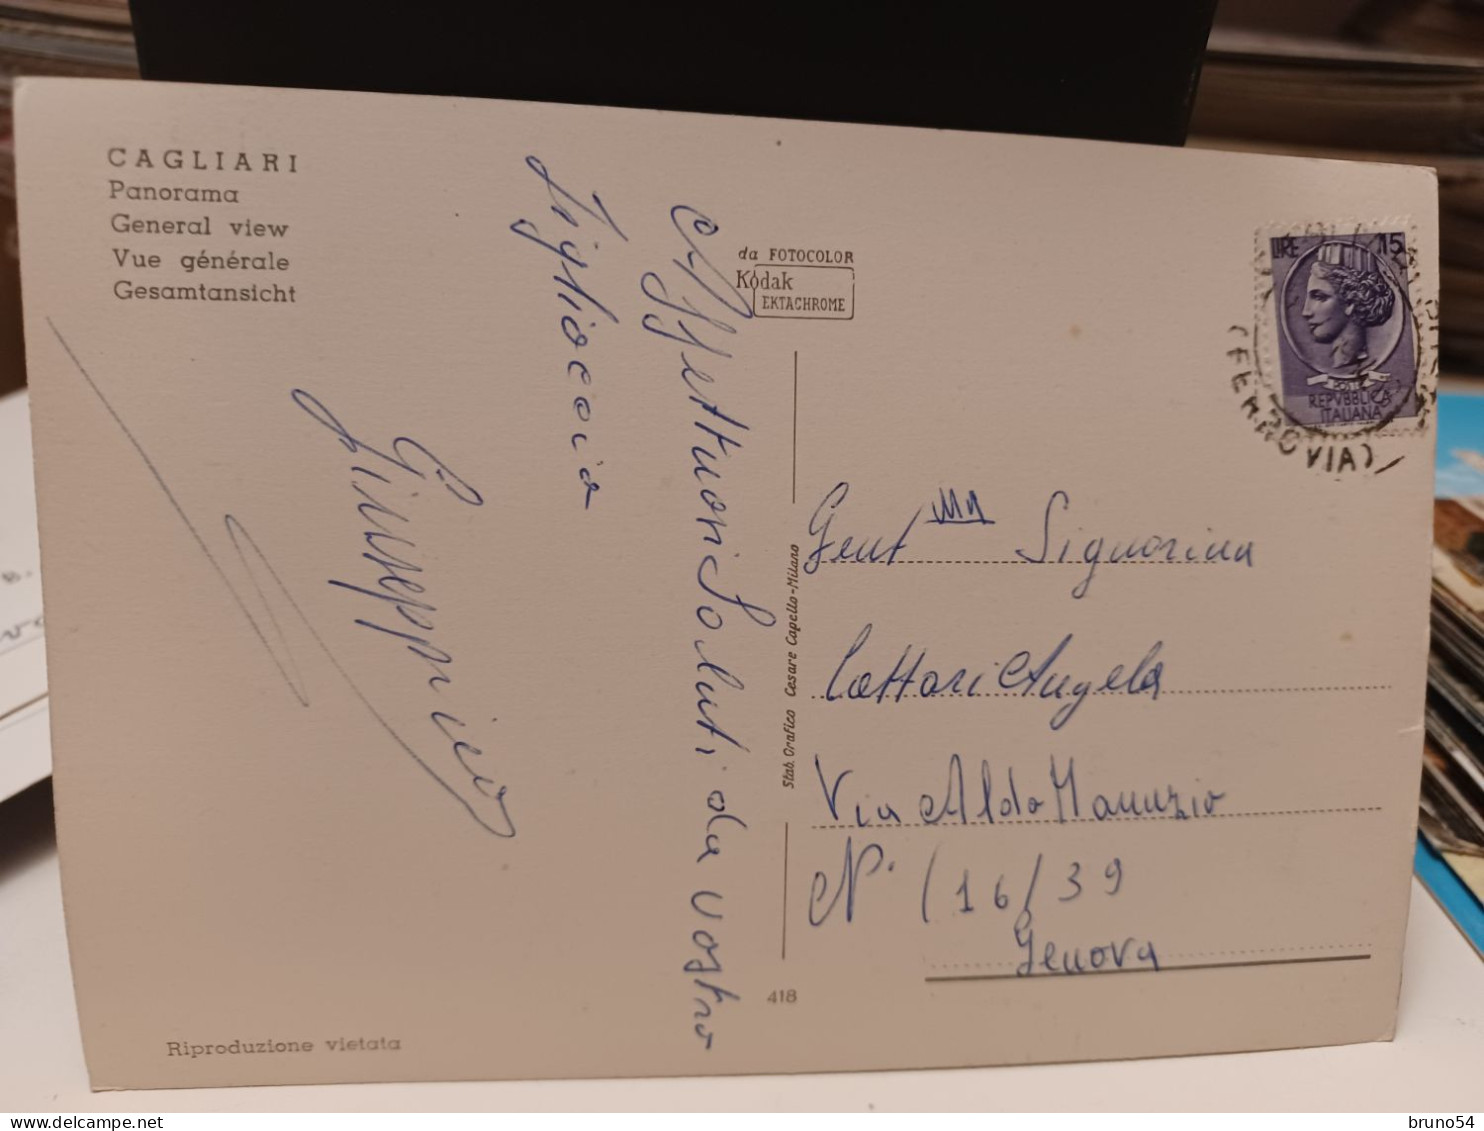 CAGLIARI
Panorama
General view
Vue générale
Gesamtansicht
Affettuosi Saluti da vostro
figlioccio
Giuseppino
da FOTOCOLOR
Kodak
EKTACHROME
LIRE 15
POSTE
REPVBBLICA
ITALIANA
(FERROVIA)
Gent ma Signorina
Cattari Angela
Via Aldo Manuzio
N. (16/39
Genova
Stab. Grafico Cesare Capello-Milano
418
Riproduzione vietata
bruno54